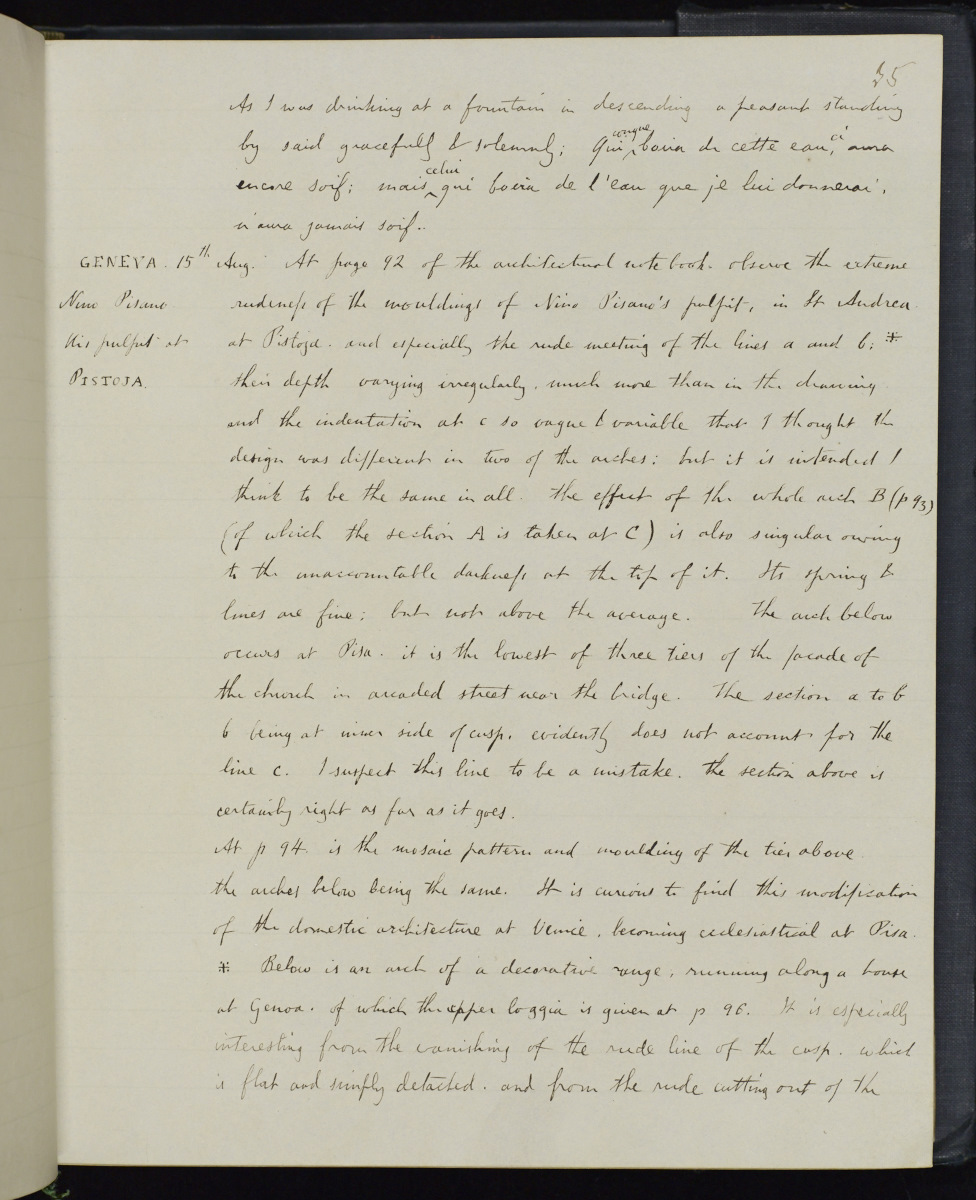 35
As I was drinking at a fountain in descending a peasant standing
by said gracefully & solemnly; Quiconque boira de cette eau,ci aura
encore soif; mais celui qui boira de l'eau que je lui donnerai,
n'aura jamais soif..
GENEVA. 15th Aug. At page 92 of the architectural notebook. observe the extreme
Nino Pisano rudeness of the mouldings of Nino Pisano's pulpit, in St Andrea
His pulpit at at Pistoja. and especially the rude meeting of the lines a and b; *
PISTOJA. their depth varying irregularly. much more than in the drawing
and the indentation at c so vague & variable that I thought the
design was different in two of the arches: but it is intended I
think to be the same in all. The effect of the whole arch B (p 93)
(of which the section A is taken at C) is also singular owing
to the unaccountable darkness at the top of it. Its spring &
lines are fine; but not above the average. The arch below
occurs at Pisa. it is the lowest of three tiers of the facade of
the church in arcaded street near the bridge. The section a to b
b being at inner side of cusp. evidently does not account for the
line c. I suspect this line to be a mistake. the section above is
certainly right as far as it goes.
At p 94. is the mosaic pattern and moulding of the tier above
the arches below being the same. It is curious to find this modification
of the domestic architecture at Venice, becoming ecclesiastical at Pisa.
* Below is an arch of a decorative range, running along a house
at Genoa. of which the upper loggia is given at p 96. It is especially
interesting from the vanishing of the rude line of the cusp. which
is flat and simply detached. and from the rude cutting out of the